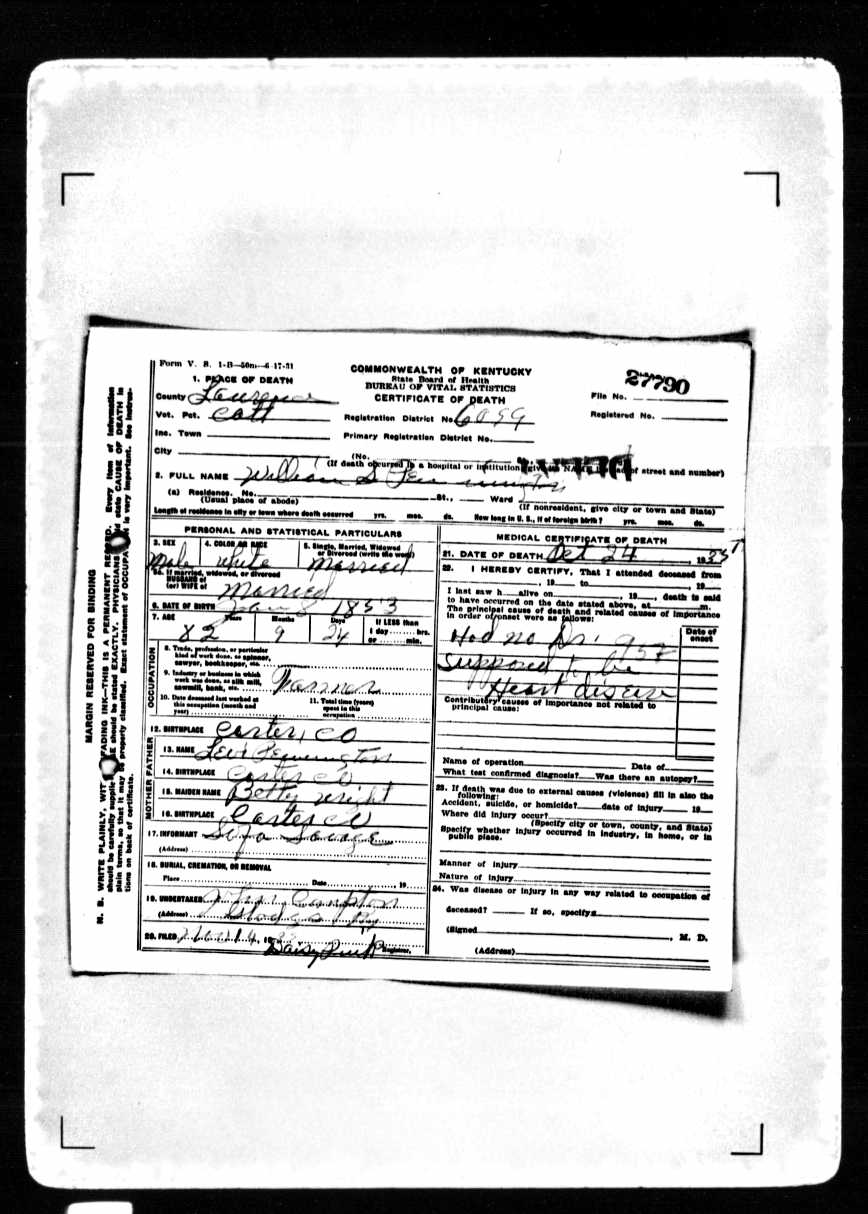 Form V. S. 1-B—50m—6-17-31
1. PLACE OF DEATH
County Lawrence
Vot. Pct. Catt
Inc. Town
City
COMMONWEALTH OF KENTUCKY
State Board of Health
BUREAU OF VITAL STATISTICS
CERTIFICATE OF DEATH
Registration District No. 6099
Primary Registration District No.
(No.
27790
File No.
Registered No.
(If death occurred in a hospital or institution, give its NAME of street and number)
2. FULL NAME William S Pennington
(a) Residence. No. St., Ward
(Usual place of abode) (If nonresident, give city or town and State)
Length of residence in city or town where death occurred yrs. mos. ds. How long in U. S., if of foreign birth? yrs. mos. ds.
PERSONAL AND STATISTICAL PARTICULARS
3. SEX 4. COLOR OR RACE 5. Single, Married, Widowed
or Divorced (write the word)
Male white Married
5a. If married, widowed, or divorced
HUSBAND of
(or) WIFE of Married
6. DATE OF BIRTH Jan 8 1853
7. AGE Years Months Days If LESS than
1 day hrs.
82 9 24 or min.
OCCUPATION
8. Trade, profession, or particular
kind of work done, as spinner,
sawyer, bookkeeper, etc.
9. Industry or business in which
work was done, as silk mill,
sawmill, bank, etc. Farmer
10. Date deceased last worked at
this occupation (month and
year)
11. Total time (years)
spent in this
occupation
12. BIRTHPLACE Carter, CO
MOTHER FATHER
13. NAME Levi Pennington
14. BIRTHPLACE Carter CO
15. MAIDEN NAME Betty Wright
16. BIRTHPLACE Carter CO
17. INFORMANT Savage
(Address)
18. BURIAL, CREMATION, OR REMOVAL
Place Date , 19
19. UNDERTAKER John Compton
(Address) Ky
20. FILED 14, 19
Daisy Registrar.
MEDICAL CERTIFICATE OF DEATH
21. DATE OF DEATH Oct 24, 1935
22. I HEREBY CERTIFY, That I attended deceased from
, 19 to , 19
I last saw h alive on , 19 , death is said
to have occurred on the date stated above, at m.
The principal cause of death and related causes of importance
in order of onset were as follows:
Date of
onset
Had no Dr.
supposed to be
Heart disease
Contributory causes of importance not related to
principal cause:
Name of operation Date of
What test confirmed diagnosis? Was there an autopsy?
23. If death was due to external causes (violence) fill in also the
following:
Accident, suicide, or homicide? date of injury 19
Where did injury occur?
(Specify city or town, county, and State)
Specify whether injury occurred in industry, in home, or in
public place.
Manner of injury
Nature of injury
24. Was disease or injury in any way related to occupation of
deceased? If so, specify
(Signed , M. D.
(Address)
MARGIN RESERVED FOR BINDING